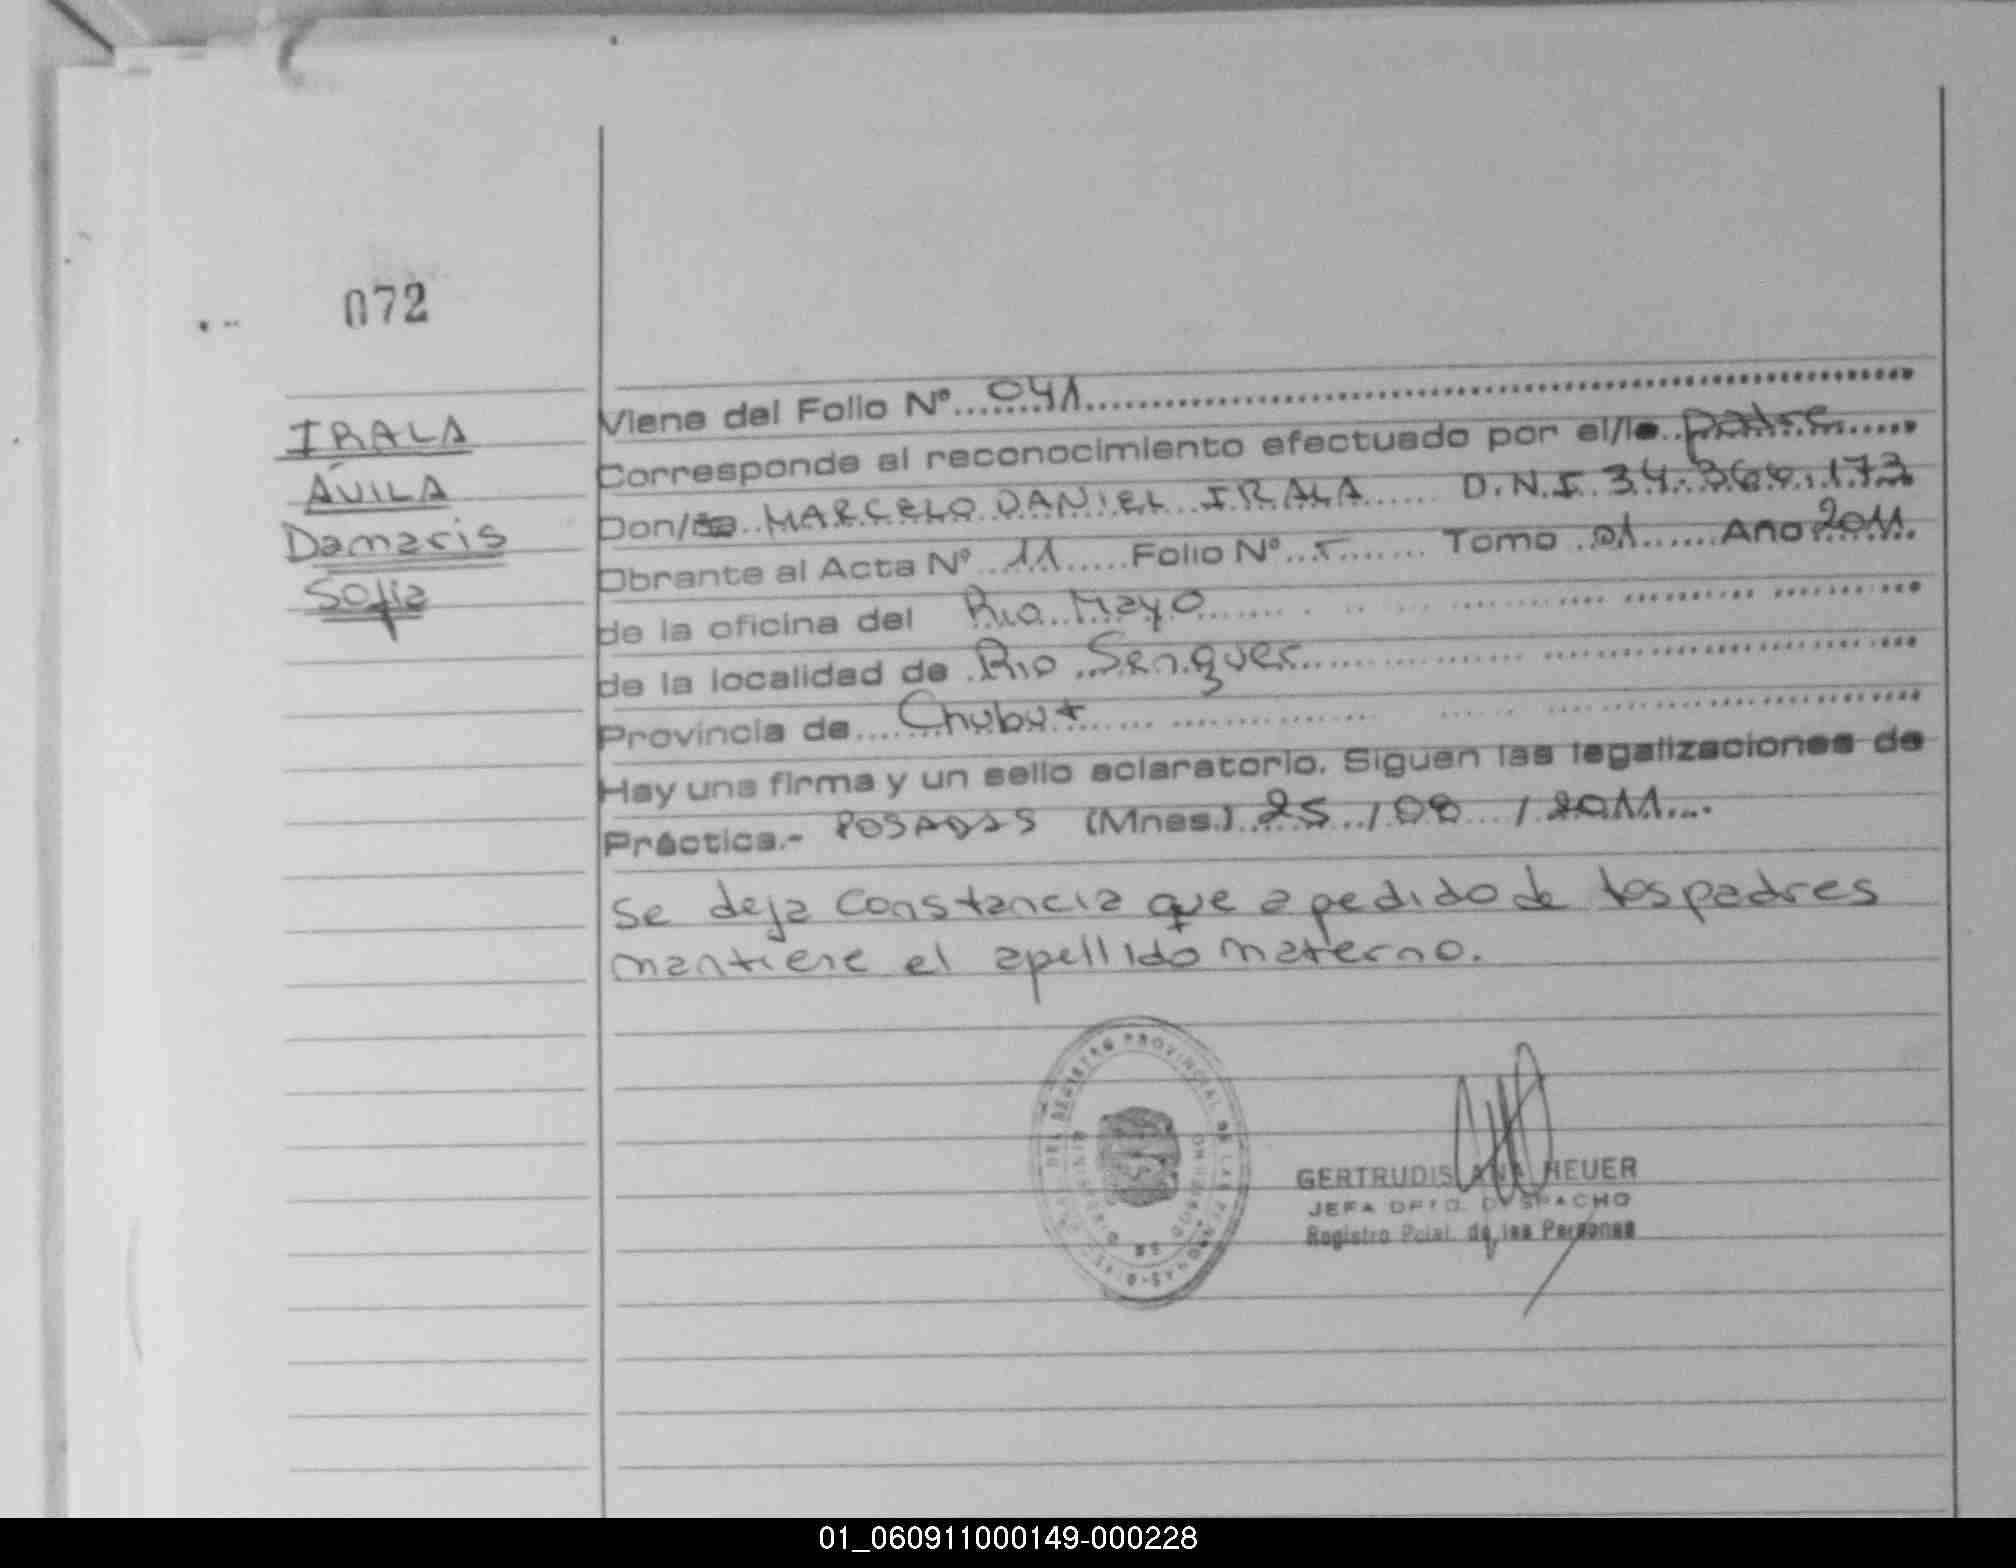 072
IRALA
ÁVILA
Damaris
Sofia
Viene del Folio Nº 041
Corresponde al reconocimiento efectuado por el/la padre
Don/ña MARCELO DANIEL IRALA D.N.I. 34.364.173
Obrante al Acta Nº 11 Folio Nº 5 Tomo 01 Año 2011.
de la oficina del Rio Mayo
de la localidad de Rio Senguer
Provincia de Chubut
Hay una firma y un sello aclaratorio. Siguen las legalizaciones de
Práctica.- POSADAS (Mnes.) 25 / 08 / 2011
Se deja constancia que a pedido de los padres
mantiene el apellido materno.
DEL REGISTRO PROVINCIAL DE LAS PERSONAS
GERTRUDIS ANA HEUER
JEFA DPTO. DESPACHO
Registro Pcial. de las Personas
01_060911000149-000228